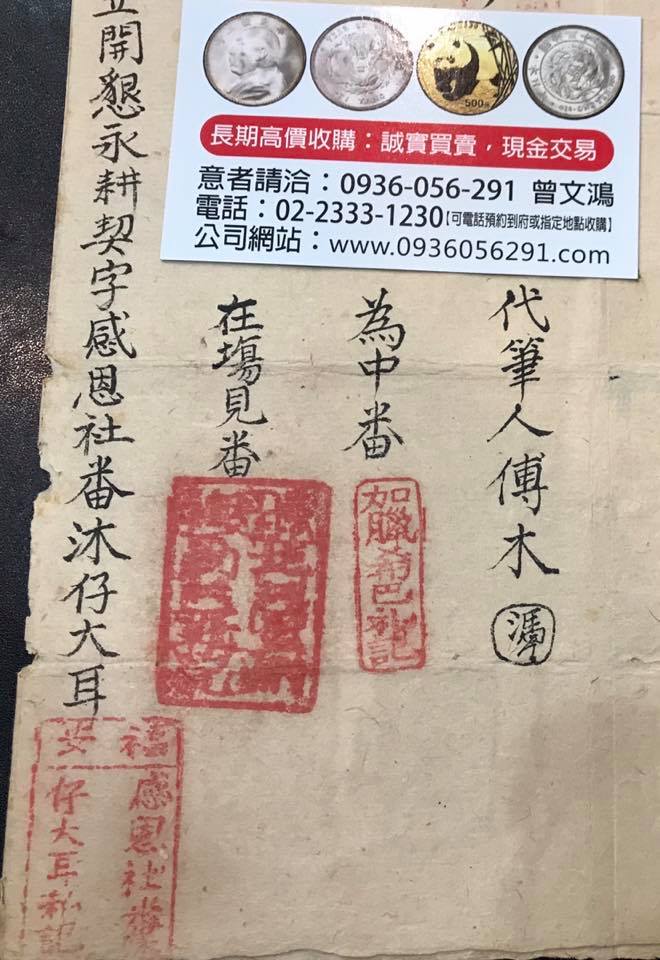 500元
長期高價收購：誠實買賣，現金交易
意者請洽：0936-056-291 曾文鴻
電話：02-2333-1230【可電話預約到府或指定地點收購】
公司網站：www.0936056291.com
代筆人傅木
為中番
如臘希巴私記
在塲見番
立開懇永耕契字感恩社番沐仔大耳
感恩社
仔大耳私記